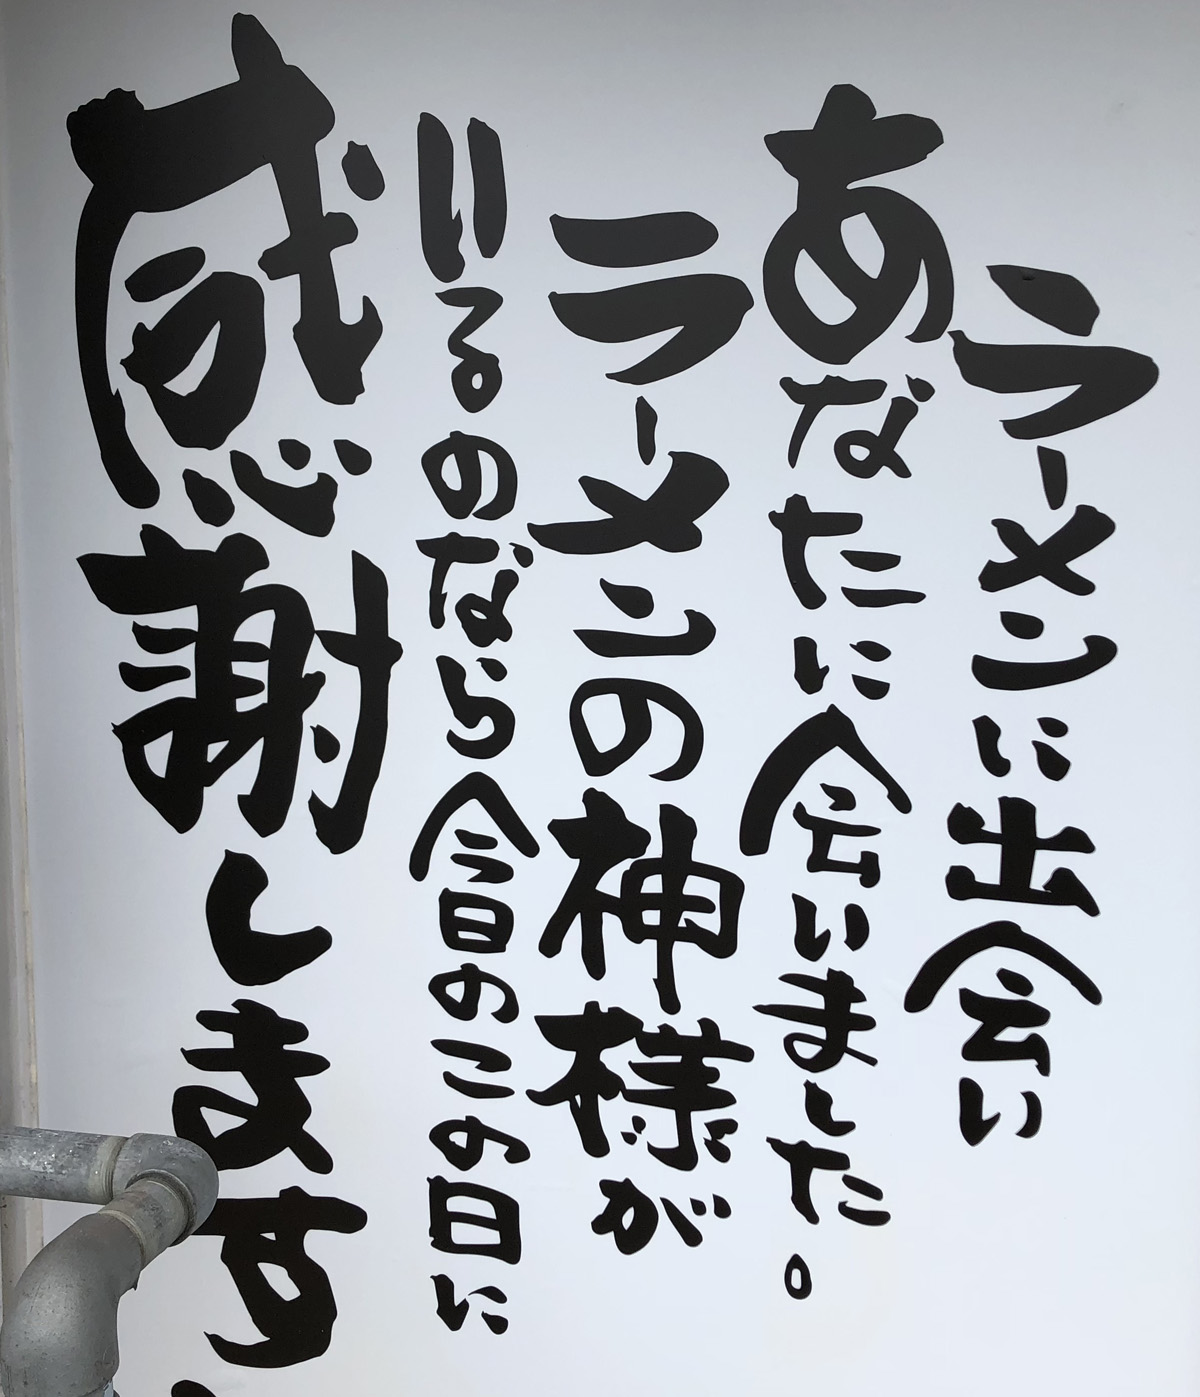 ラーメンに出会い
あなたに会いました。
ラーメンの神様が
いるのなら今日のこの日に
感謝します